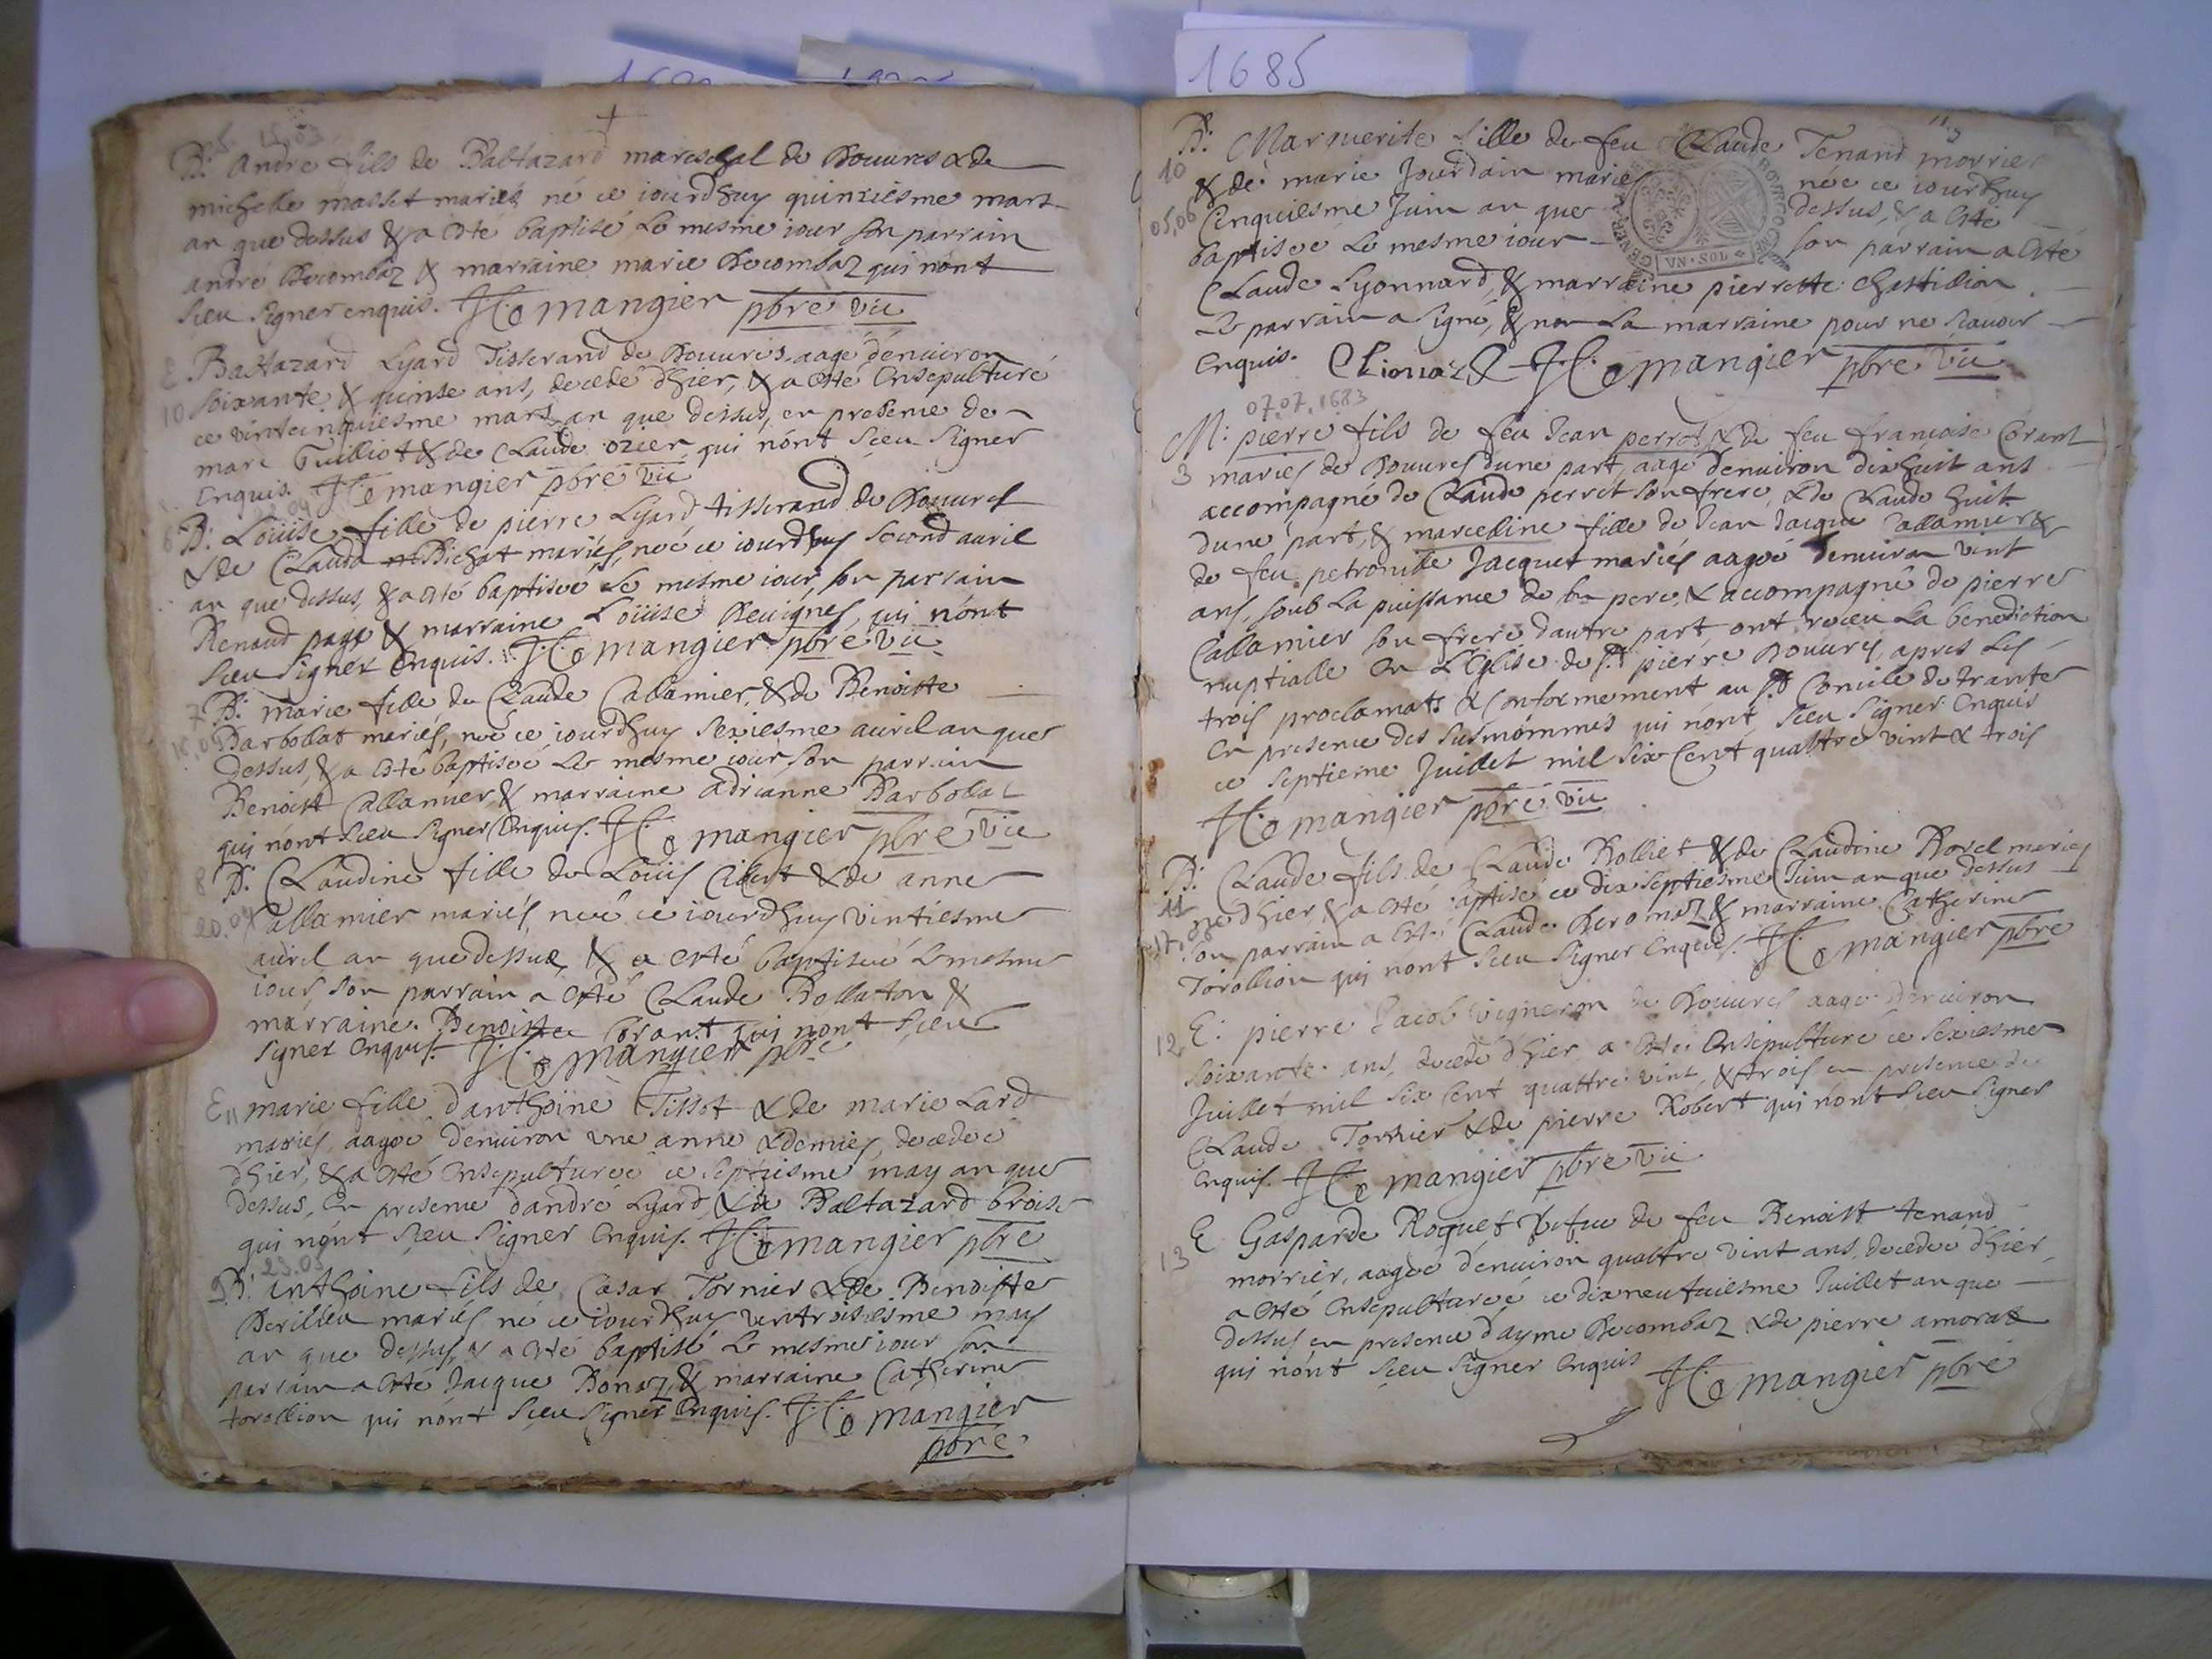 1685
B: Andre fils de Baltazard mareschal de Bouures & de
michelle masset mariés né ce iourdhuy quinziesme mars
an que dessus & a esté baptisé le mesme iour son parrain
andré Becombaz & marraine marie Becombaz qui nont
sceu signer enquis. mangier pbre vic
Baltazard Lyard Tisserand de Bouures aagé denuiron
10 soixante & quinse ans, decedé dhier, & a esté ensepulturé
ce vintcinquiesme mars an que dessus, en presence de
marc Guilliot & de Claude ozier qui nont sceu signer
enquis. mangier pbre vic
6 B: Loüise fille de pierre Lyard tisserand de Bouures
& de Clauda Bichat mariés, neé ce iourdhuy second auril
an que dessus, & a esté baptiseé le mesme iour, son parrain
Renaud page & marraine Loüise Beuignes, qui nont
sceu signer enquis. mangier pbre vic
7 B: marie fille de Claude Callamier, & de Benoiste
Barbollat mariés, neé ce iourdhuy sexiesme auril an que
dessus, & a esté baptiseé le mesme iour son parrain
Benoist Callamier & marraine adrianne Barbollat
qui nont sceu signer enquis. mangier pbre vic
8 B: Claudine fille de Loüis Cibert & de anne
20.04 Callamier mariés, neé ce iourdhuy vintiesme
auril an que dessus, & a esté baptiseé le mesme
iour, son parrain a esté Claude Bollaton &
marraine. Benoiste Corant qui nont sceu
signer enquis. mangier pbre
E 11 marie fille danthoine Tissot & de marie Lard
mariés, aageé denuiron vne anne & demies, decedeé
dhier, & a esté ensepultureé ce septiesme may an que
dessus, en presence dandré Lyard, & de Baltazard broise
qui nont sceu signer enquis. mangier pbre
23.05
9 B: anthoine fils de Cæsar Tornier & de Benoiste
Berilliou mariés né ce iourdhuy vintroisiesme may
an que dessus, & a esté baptisé le mesme iour son
parrain a esté Jacque Bonaz, & marraine Catherine
torollion qui nont sceu signer enquis. mangier
pbre
B: Marguerite fille de feu Claude Tenand morrier
10 & de marie Jourdain mariés neé ce iourdhuy
05.06 Cinquiesme Juin an que dessus, & a esté
baptiseé le mesme iour son parrain a esté
VN·SOL
Claude Lyonnard, & marraine pierrette Chastillion
le parrain a signé, & non la marraine pour ne scauoir
enquis. mangier pbre vic
07.07.1683
M: pierre fils de feu Jean perret & de feu francoise Corant
3 mariés de Bouures dune part, aagé denuiron dixhuit ans
accompagné de Claude perret son frere, & de Claude huit
dune part, & marcelline fille de Jean Jacque Callamier &
de feu petronille Jacquet mariés aageé denuiron vint
ans, soub la puissance de son pere, & accompagné de pierre
Callamier son frere dautre part, ont receu la benediction
nuptialle en LEglise de St pierre Bouures, apres les
trois proclamats & Conformement au St Concile de trante
en presence des susnommes qui nont sceu signer enquis
ce septieme Juillet mil six Cent quattre vint & trois
mangier pbre vic
B: Claude fils de Claude Rolliet & de Claudine Borel mariés
11 né dhier, & a esté baptisé ce dix septiesme Juin an que dessus
son parrain a esté Claude Beromaz & marraine Catherine
Torollion qui nont sceu signer enquis. mangier pbre
12 E: pierre Jacob vigneron de Bouures aagé denuiron
soixante ans, decedé dhier a esté ensepulturé ce sexiesme
Juillet mil six Cent quattre vint, & trois en presence de
Claude Tornier & de pierre Robert qui nont sceu signer
enquis. mangier pbre vic
E Gasparde Roquet vefue de feu Benoist tenand
13 morrier, aageé denuiron quattre vint ans, decedeé dhier,
a esté ensepultureé ce dixneufuiesme Juillet an que
dessus en presence dayme Becombaz & de pierre amoral
qui nont sceu signer enquis mangier pbre